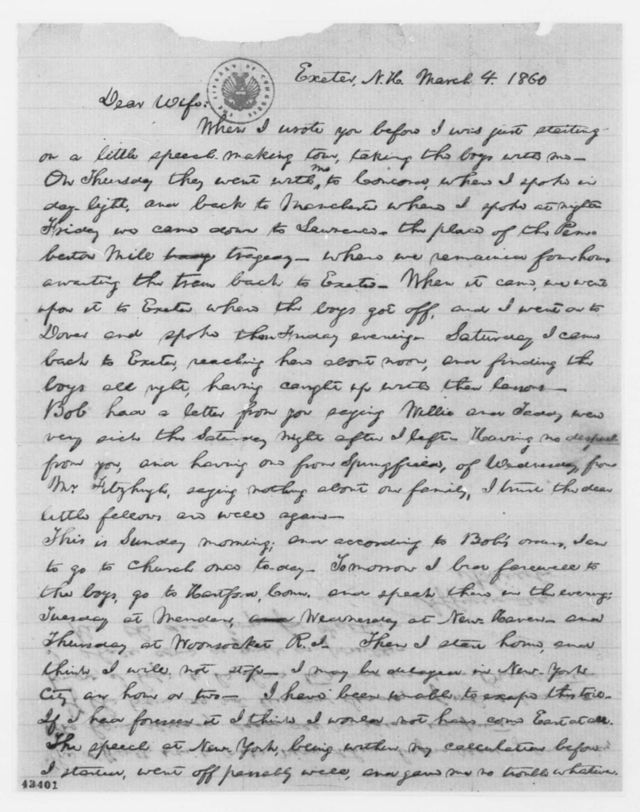 Exeter, N.H. March 4. 1860
THE LIBRARY OF CONGRESS
Dear Wife:
When I wrote you before I was just starting
on a little speech-making tour, taking the boys with me–
On Thursday they went with me to Concord, where I spoke in
day-light, and back to Manchester where I spoke at night–
Friday we came down to Lawrence– the place of the Pem-
berton Mill tragedy– where we remained four hours
awaiting the train back to Exeter– When it came, we went
upon it to Exeter where the boys got off, and I went on to
Dover and spoke there Friday evening– Saturday I came
back to Exeter, reaching here about noon, and finding the
boys all right, having caught up with their lessons–
Bob had a letter from you saying Willie and Taddy were
very sick the Saturday night after I left– Having no despatch
from you, and having one from Springfield, of Wednesday, from
Mr. Fitzhugh, saying nothing about our family, I trust the dear
little fellows are well again–
This is Sunday morning; and according to Bob's orders, I am
to go to church once to-day– Tomorrow I bid farewell to
the boys, go to Hartford, Conn. and speak there in the evening;
Tuesday at Meriden, Wednesday at New-Haven– and
Thursday at Woonsocket R.I– Then I start home, and
think I will not stop– I may be delayed in New-York
City an hour or two– I have been unable to escape this toil–
If I had foreseen it I think I would not have come East at all.
The speech at New-York, being within my calculation before
I started, went off passably well, and gave me no trouble whatever.
43401